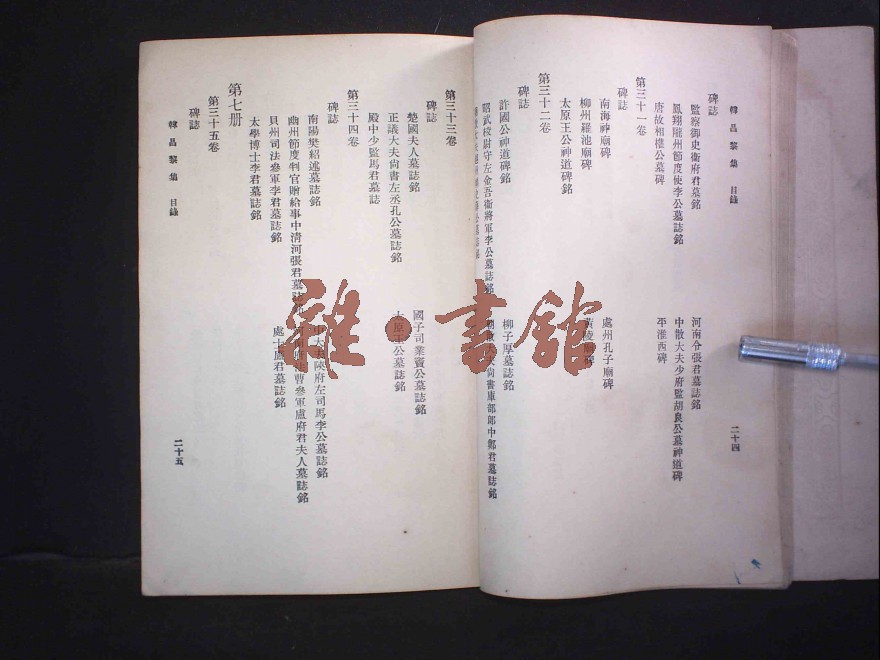 韓昌黎集 目錄
二十四
碑誌
監察御史衛府君墓誌銘
河南令張君墓誌銘
鳳翔隴州節度使李公墓誌銘
中散大夫少府監胡良公墓神道碑
唐故相權公墓碑
平淮西碑
第三十一卷
碑誌
南海神廟碑
處州孔子廟碑
柳州羅池廟碑
黃陵廟碑
太原王公神道碑銘
第三十二卷
碑誌
許國公神道碑銘
柳子厚墓誌銘
昭武校尉守左金吾衛將軍李公墓誌銘
大夫尚書庫部郎中鄭君墓誌銘
第三十三卷
碑誌
楚國夫人墓誌銘
國子司業竇公墓誌銘
正議大夫尚書左丞孔公墓誌銘
太原王公墓誌銘
殿中少監馬君墓誌
第三十四卷
碑誌
南陽樊紹述墓誌銘
中大夫陝府左司馬李公墓誌銘
幽州節度判官贈給事中清河張君墓誌銘
河南府法曹參軍盧府君夫人墓誌銘
貝州司法參軍李君墓誌銘
處士盧君墓誌銘
太學博士李君墓誌
第七册
第三十五卷
碑誌
韓昌黎集 目錄
二十五
雜·書館